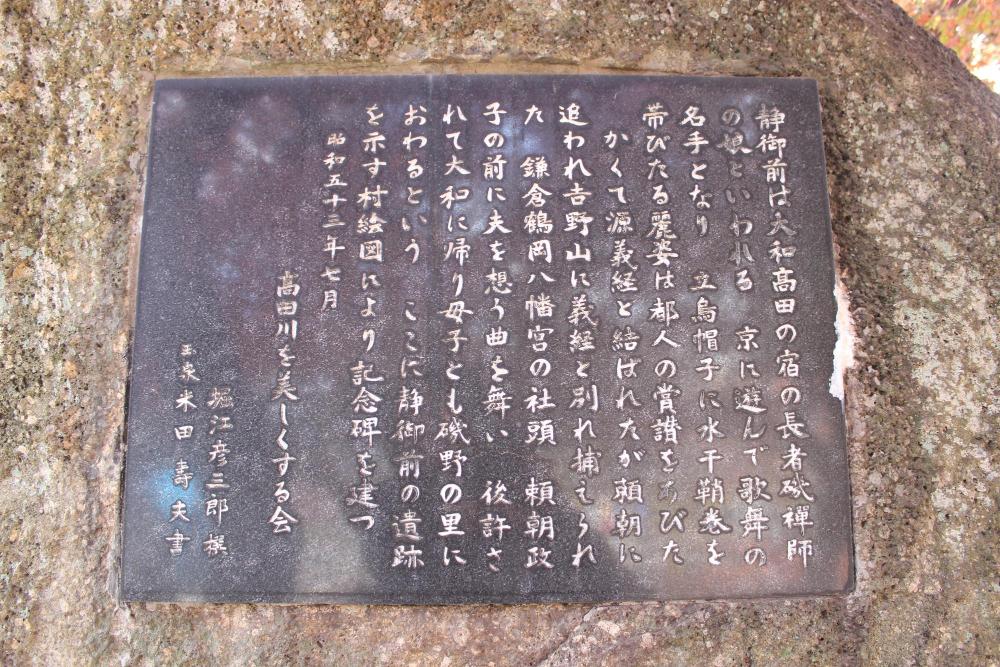 静御前は大和高田の宿の長者磯禅師
の娘といわれる　京に遊んで歌舞の
名手となり　立烏帽子に水干鞘巻を
帯びたる麗姿は都人の賞讃をあびた
かくて源義経と結ばれたが頼朝に
追われ吉野山に義経と別れ捕えられ
た　鎌倉鶴岡八幡宮の社頭　頼朝政
子の前に夫を想う曲を舞い　後許さ
れて大和に帰り母子とも磯野の里に
おわるという　ここに静御前の遺跡
を示す村絵図により記念碑を建つ
昭和五十三年七月
高田川を美しくする会
堀江彦三郎 撰
玉泉 米田壽夫書